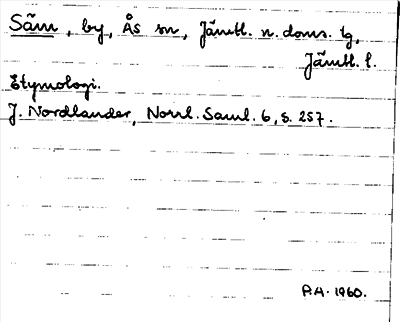 Säm, by, Ås sn, Jämtl. n. doms. tg,
Jämtl. l.
Etymologi.
J. Nordlander, Norrl. Saml. 6, s. 257.
P.H. 1960.